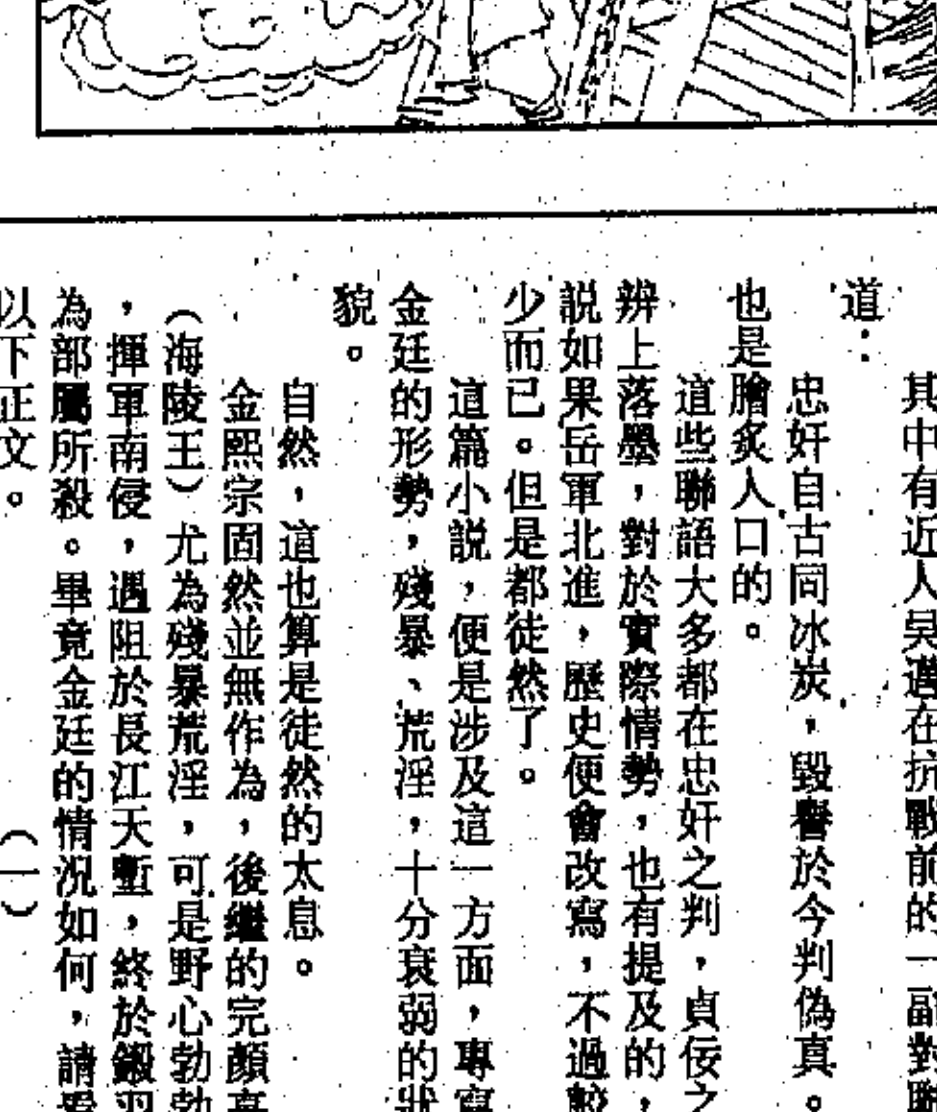 其中有近人吳邁在抗戰前的一副對聯
道：
忠奸自古同冰炭，毀譽於今判偽真。
也是膾炙人口的。
這些聯語大多都在忠奸之判，貞佞之
辨上落墨，對於實際情勢，也有提及的，
說如果岳軍北進，歷史便會改寫，不過較
少而已。但是都徒然了。
這篇小說，便是涉及這一方面，專寫
金廷的形勢，殘暴、荒淫，十分衰弱的狀
貌。
自然，這也算是徒然的太息。
金熙宗固然並無作為，後繼的完顏
（海陵王）尤為殘暴荒淫，可是野心勃勃
，揮軍南侵，遇阻於長江天塹，終於鎩羽
為部屬所殺。畢竟金廷的情況如何，請看
以下正文。
（一）